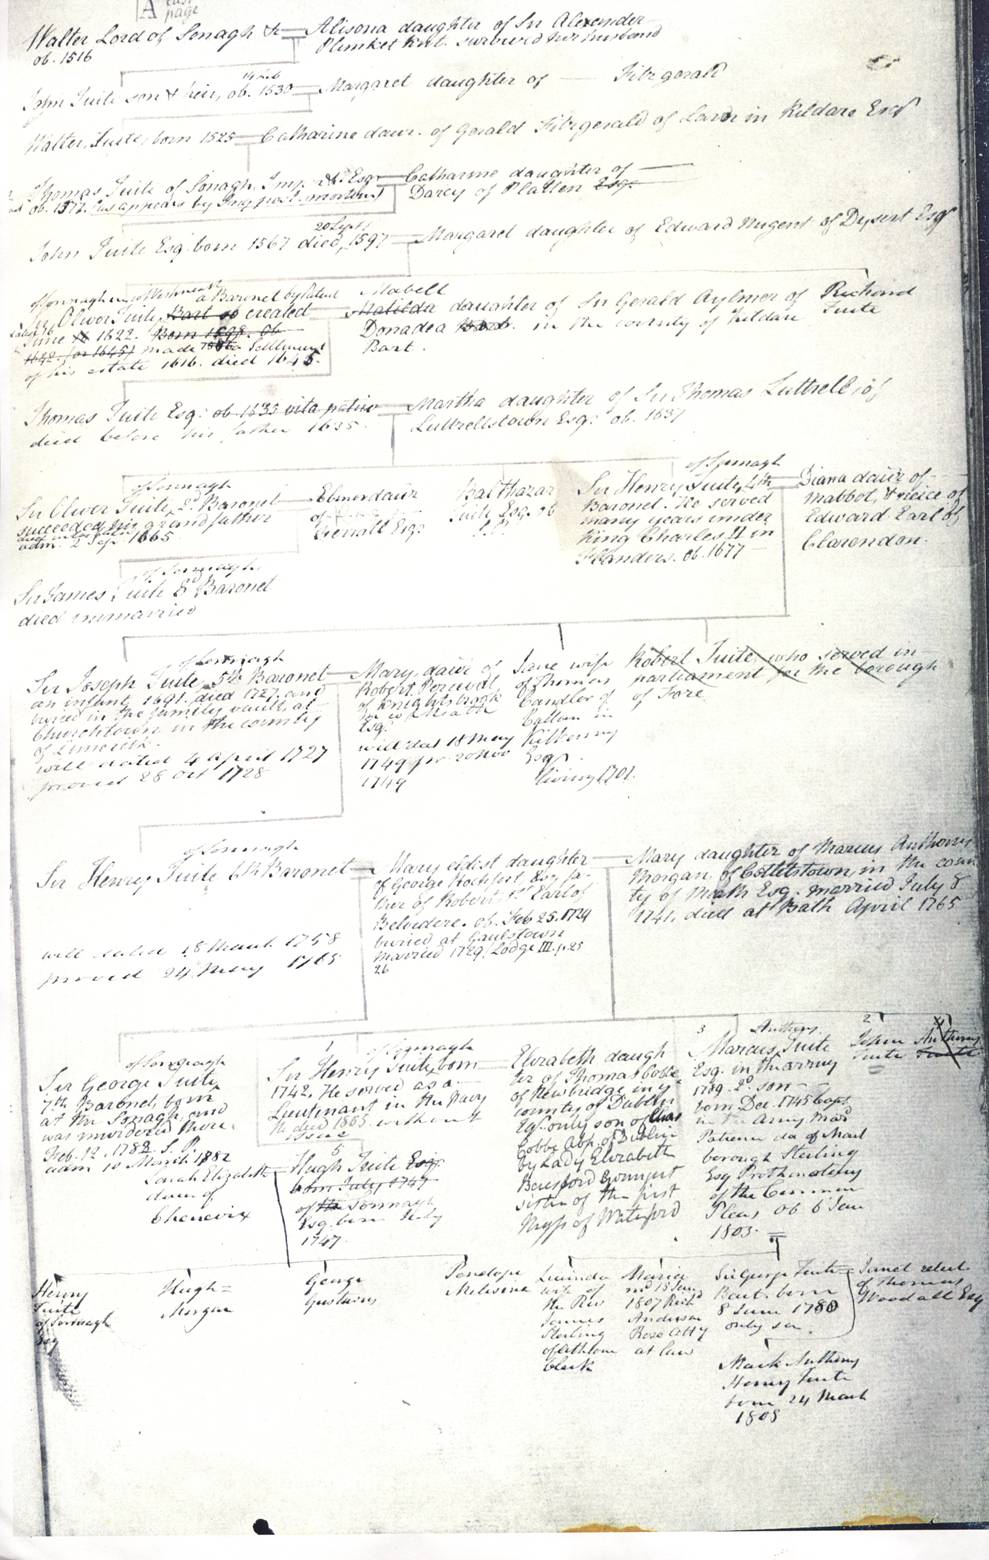 A last
page
Walter Lord of Sonagh & = Alisona daughter of Sir Alexander
ob. 1516
Plunket Knt. survived her husband
John Tuite son & heir, ob. 1530 = Margaret daughter of — Fitzgerald
14 Feb
Walter Tuite, born 1525 = Catharine daur. of Gerald Fitzgerald of in Kildare Esqr
Thomas Tuite of Sonagh. Inq. Esq. = Catharine daughter of —
ob. (as appears by Inq. post mortem)
Darcy of Platten Esq.
20 Sept
John Tuite Esq. born 1567 died 1597 = Margaret daughter of Edward Nugent of Dysert Esqr
of Sonnagh in Westmeath a Baronet by Patent
Oliver Tuite Bart so created =
June 1622. Born ob
made settlement
of his estate 1616. died 1645.
Mabell
Matilda daughter of Sir Gerald Aylmer of
Donadea in the county of Kildare
Bart.
Richard
Tuite
Thomas Tuite Esq: ob 1633 vita patris = Martha daughter of Sir Thomas Luttrell of
died before his father 1635
Luttrellstown Esq: ob. 1637
of Sonnagh
Sir Oliver Tuite, 2d Baronet =
succeeded his grandfather
adm. 2 Sep. 1665
Elinor daur
of
Esqr
Balthazar
Tuite Esq. ob
S.P.
of Sonnagh
Sir Henry Tuite, 4th =
Baronet. He served
many years under
King Charles II in
Flanders. ob. 1677
Diana daur of
Mabbot, & neice of
Edward Earl of
Clarendon.
of Sonnagh
Sir James Tuite 3d Baronet
died unmarried
of Sonnagh
Sir Joseph Tuite, 5th Baronet =
an infant 1691. died 1727. and
buried in the family vault at
Churchtown in the county
of Limerick.
will dated 4 April 1727
proved 28 Oct 1728
Mary daur of
Robert Percival
of Knightsbrook
Esq:
will dat 18 May
1749 pr. 20 Nov
1749
Jane wife
of Thomas
Candler of
Callan in
Kilkenny
Esqr.
living 1701.
Robert Tuite, who served in
parliament for the borough
of Fore
of Sonnagh
Sir Henry Tuite 6th Baronet =
will dated 18 March 1758
proved 24 May 1765
Mary eldest daughter =
of George Rochfort Esq. fa-
ther of Robert 1st Earl of
Belvedere. ob. Feb 25. 1729
buried at Gaulstown
married 1729. Lodge III. p. 25
26
Mary daughter of Marcus Anthony
Morgan of Cottelstown in the coun
ty of Meath Esq. married July 8
1741. died at Bath April 1765
of Sonnagh
Sir George Tuite
7th Baronet, born
at the Sonagh and
was murdered there
Feb. 12. 1782 S.P.
adm 10 March 1882
1
of Sonnagh
Sir Henry Tuite, born =
1742. He served as a
Lieutenant in the Navy
he died 1805. without
issue
Elizabeth daugh
ter of Thomas Cobbe
of Newbridge in ye
county of Dublin
Eq. only son of Chas
Cobbe Abp. of Dublin
by Lady Elizabeth
Beresford youngest
sister of the first
Mqss of Waterford
3 Anthony
Marcus Tuite
Esq. in the army
1789. 2d son
born Dec. 1745 Capt.
in Army mar
Patience da of Marl
borough Sterling
Esq Prothonotary
of the Common
Pleas, ob 6 Jan
1803.
2
John
Tuite
4
Anthony
Tuite
Sarah Elizabeth =
daur of
Chenevix
5
Hugh Tuite Esq.
born July 1747
of Sonnagh
Esq. born July
1747.
Henry
Tuite
of Sonnagh
Esq
Hugh =
Morgan
George
Gustavus
Penelope
Melesina
Lucinda
wife of
the Rev
James
Sterling
of Athlone
Clerk
Maria
md 15 Jan
1807 Rich
Anderson
Rose Atty
at law
Sir George Tuite =
Bart. born
8 June 1780
only son.
Janet relict
of Thomas
Woodall Esq
Mark Anthony
Henry Tuite
born 24 March
1808